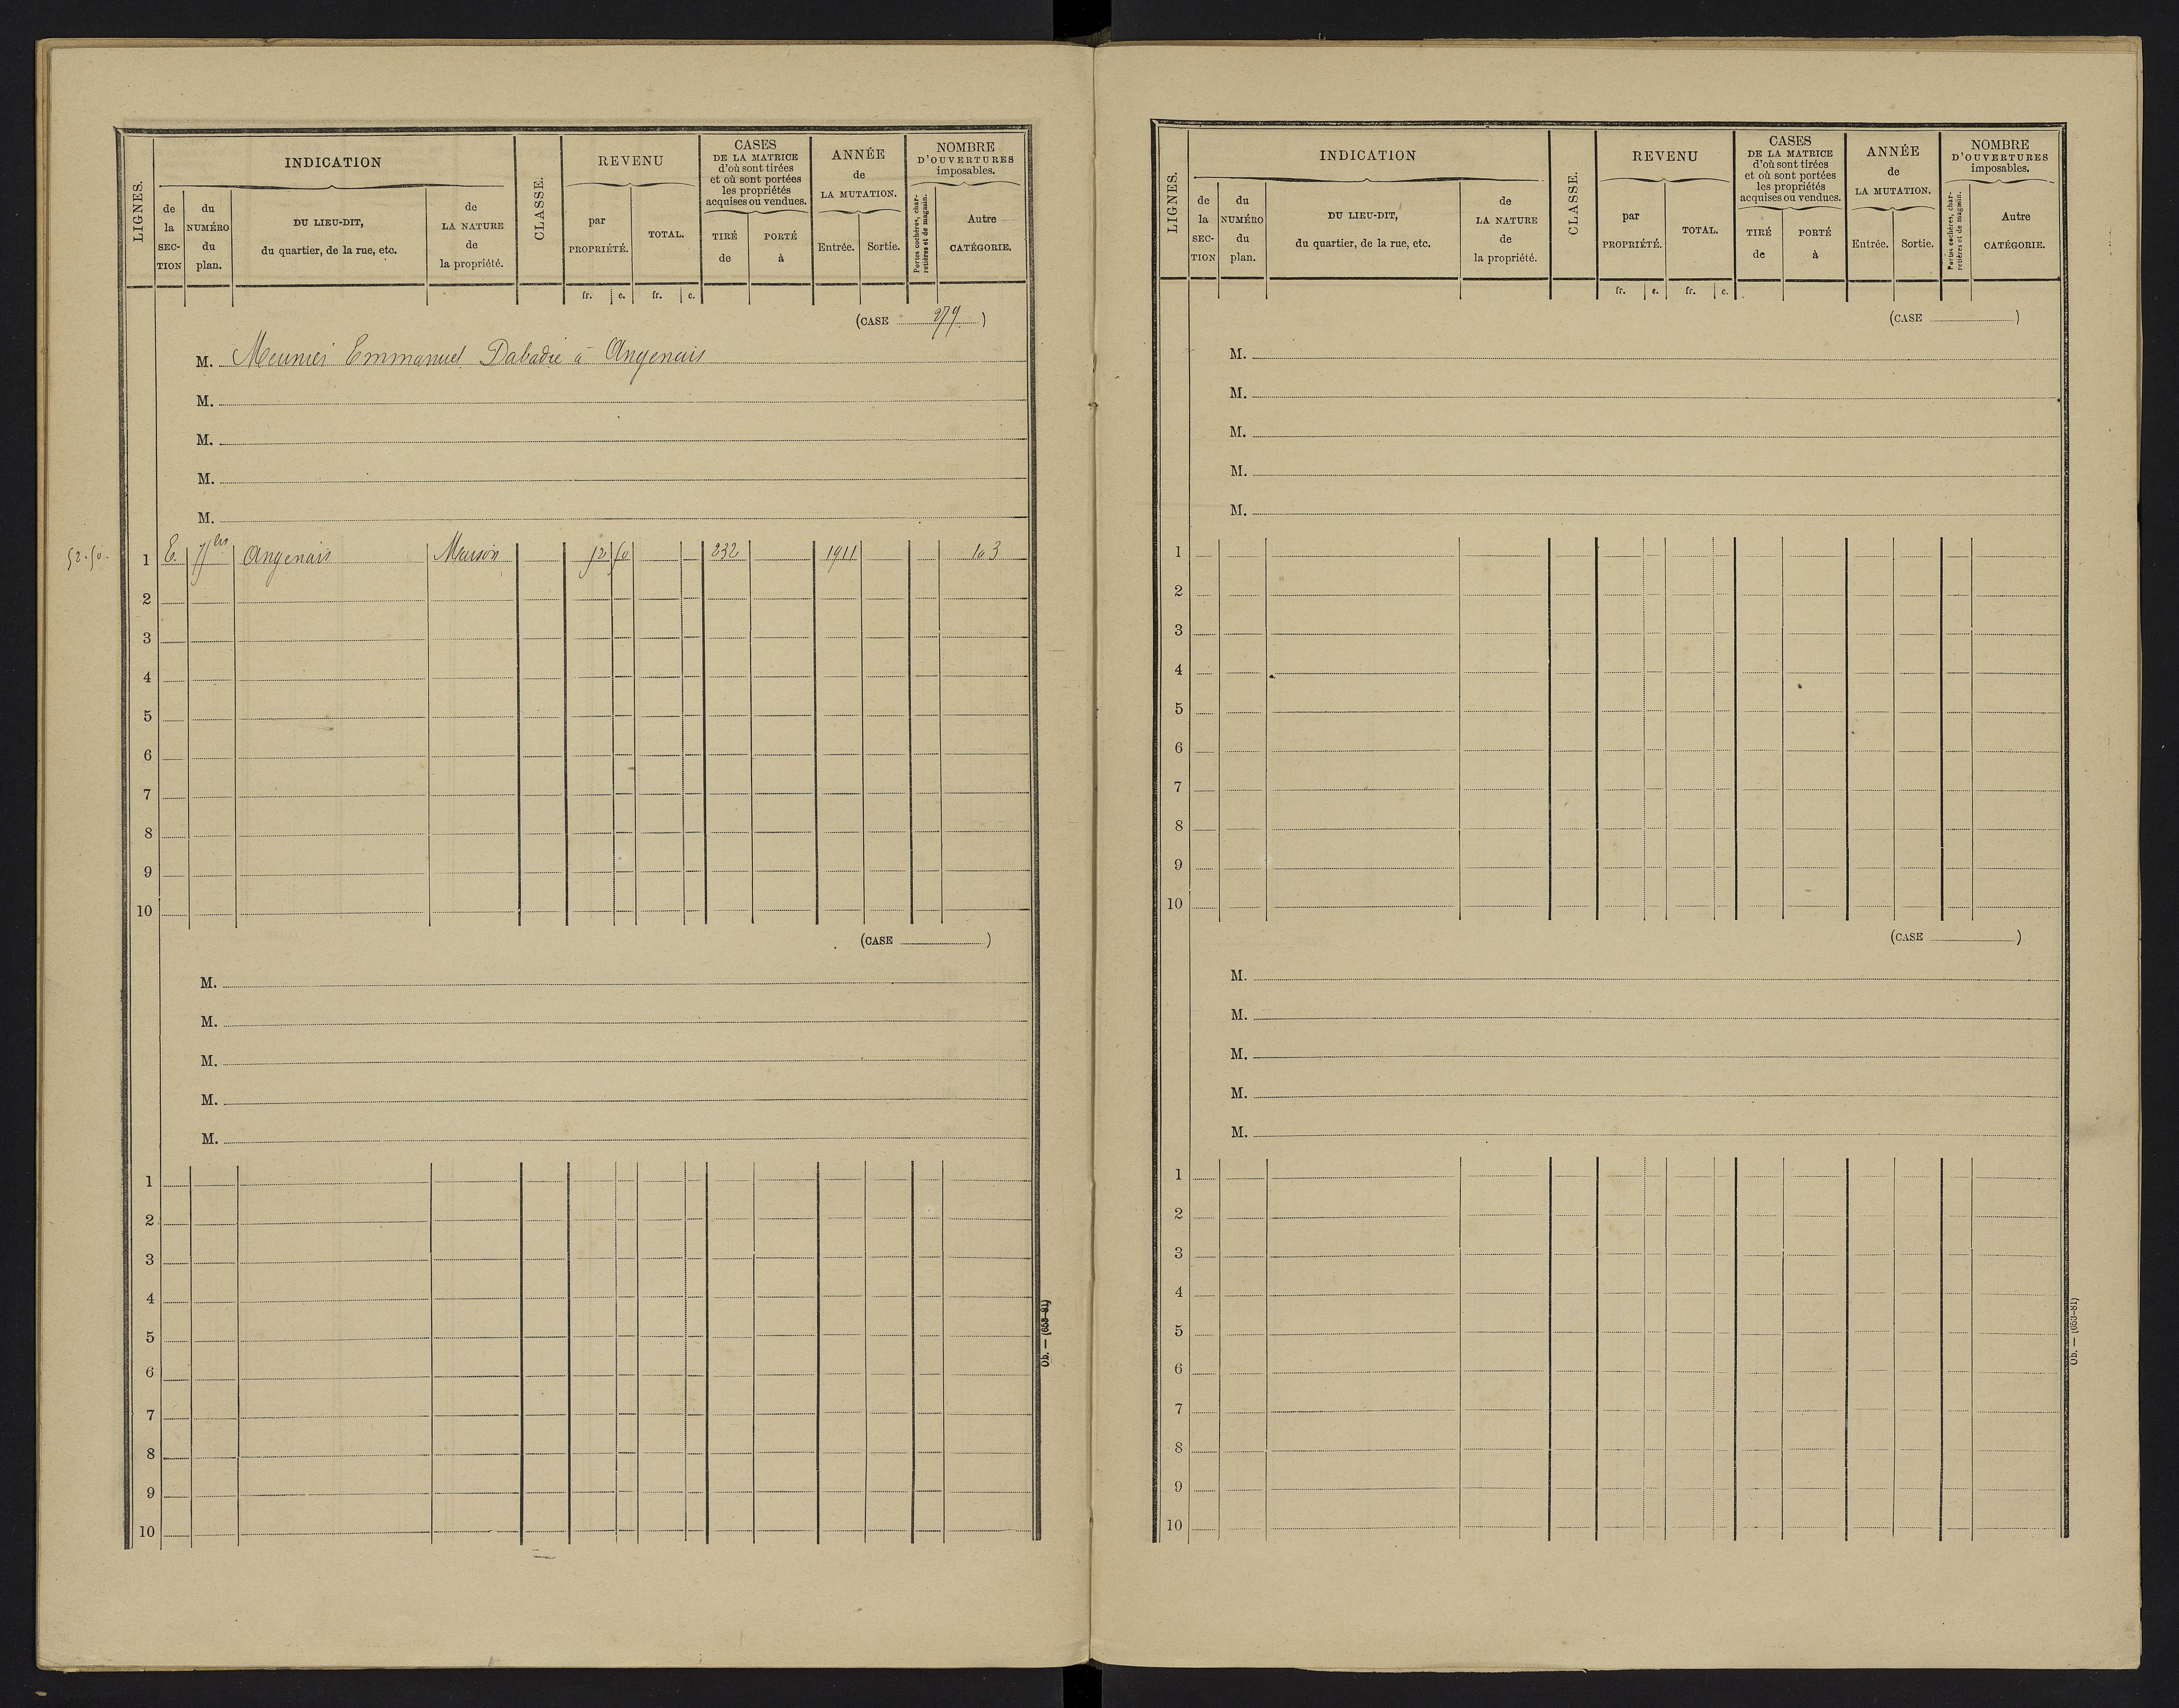 LIGNES.
INDICATION
de la SECTION
du NUMÉRO du plan.
DU LIEU-DIT, du quartier, de la rue, etc.
de LA NATURE de la propriété.
CLASSE.
REVENU
par PROPRIÉTÉ.
TOTAL.
CASES DE LA MATRICE d'où sont tirées et où sont portées les propriétés acquises ou vendues.
TIRÉ de
PORTÉ à
ANNÉE de LA MUTATION.
Entrée.
Sortie.
NOMBRE D'OUVERTURES imposables.
Portes cochères, charretières et de magasin.
Autre CATÉGORIE.
fr. c. fr. c.
(CASE 279 )
M. Meunier Emmanuel Dabadie à Angenais
M.
M.
M.
M.
52.50. 1 E. Angenais Maison 52 50 232 1911 1 à 3
2
3
4
5
6
7
8
9
10
(CASE )
M.
M.
M.
M.
M.
1
2
3
4
5
6
7
8
9
10
Ob. — (653-81)
LIGNES.
INDICATION
de la SECTION
du NUMÉRO du plan.
DU LIEU-DIT, du quartier, de la rue, etc.
de LA NATURE de la propriété.
CLASSE.
REVENU
par PROPRIÉTÉ.
TOTAL.
CASES DE LA MATRICE d'où sont tirées et où sont portées les propriétés acquises ou vendues.
TIRÉ de
PORTÉ à
ANNÉE de LA MUTATION.
Entrée.
Sortie.
NOMBRE D'OUVERTURES imposables.
Portes cochères, charretières et de magasin.
Autre CATÉGORIE.
fr. c. fr. c.
(CASE )
M.
M.
M.
M.
M.
1
2
3
4
5
6
7
8
9
10
(CASE )
M.
M.
M.
M.
M.
1
2
3
4
5
6
7
8
9
10
Ob. — (653-81)